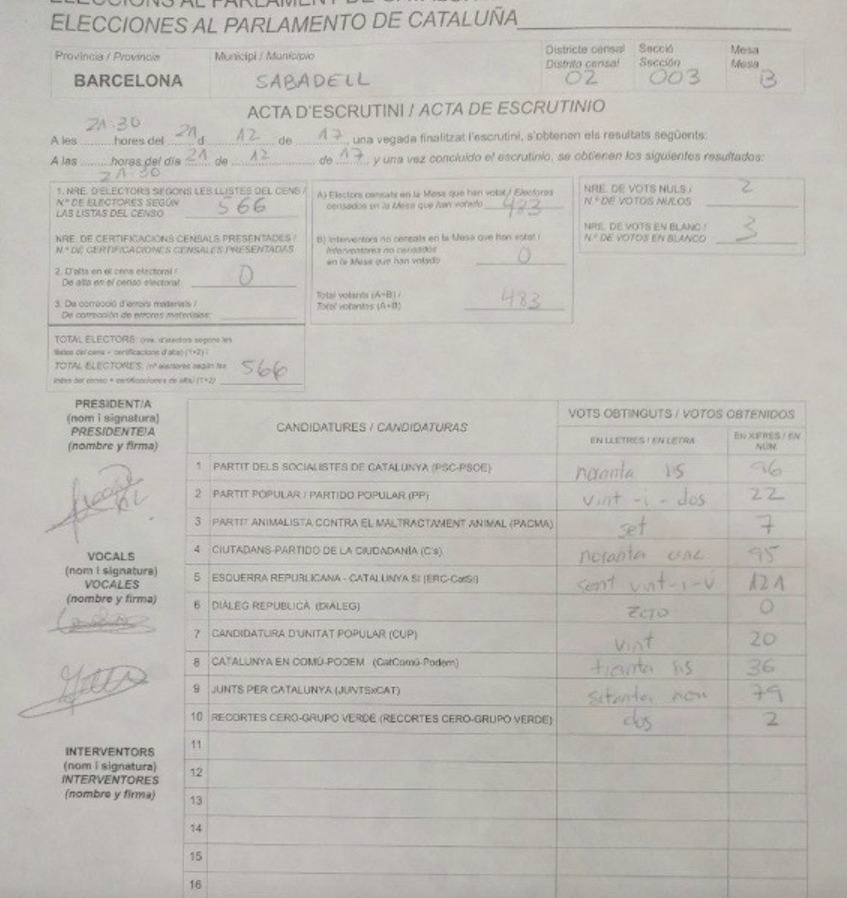 ELECCIONS AL PARLAMENT DE CATALUNYA
ELECCIONES AL PARLAMENTO DE CATALUÑA
Provincia / Provincia
Municipi / Municipio
Districte censal
Distrito censal
Secció
Sección
Mesa
Mesa
BARCELONA
SABADELL
02
003
B
ACTA D'ESCRUTINI / ACTA DE ESCRUTINIO
21:30
A les ........ hores del 21 d 12 de 17, una vegada finalitzat l'escrutini, s'obtenen els resultats següents:
A las ........ horas del día 21 de 12 de 17 y una vez concluido el escrutinio, se obtienen los siguientes resultados:
21:30
1. NRE. D'ELECTORS SEGONS LES LLISTES DEL CENS /
N.º DE ELECTORES SEGÚN
LAS LISTAS DEL CENSO
566
NRE. DE CERTIFICACIONS CENSALS PRESENTADES /
N.º DE CERTIFICACIONES CENSALES PRESENTADAS
2. D'alta en el cens electoral /
De alta en el censo electoral
0
3. De correcció d'errors materials /
De corrección de errores materiales:
A) Electors censats en la Mesa que han votat / Electores
censados en la Mesa que han votado
483
B) Interventors no censats en la Mesa que han votat /
Interventores no censados
en la Mesa que han votado
0
Total votants (A+B) /
Total votantes (A+B)
483
NRE. DE VOTS NULS /
N.º DE VOTOS NULOS
2
NRE. DE VOTS EN BLANC /
N.º DE VOTOS EN BLANCO
3
TOTAL ELECTORS: (nre. d'electors segons les
llistes del cens + certificacions d'alta) (1+2) /
TOTAL ELECTORES: (nº electores según las
listas del censo + certificaciones de alta) (1+2)
566
PRESIDENT/A
(nom i signatura)
PRESIDENTE/A
(nombre y firma)
VOCALS
(nom i signatura)
VOCALES
(nombre y firma)
INTERVENTORS
(nom i signatura)
INTERVENTORES
(nombre y firma)
CANDIDATURES / CANDIDATURAS
VOTS OBTINGUTS / VOTOS OBTENIDOS
EN LLETRES / EN LETRA
EN XIFRES / EN
NÚM.
1 PARTIT DELS SOCIALISTES DE CATALUNYA (PSC-PSOE) noranta sis 96
2 PARTIT POPULAR / PARTIDO POPULAR (PP) vint-i-dos 22
3 PARTIT ANIMALISTA CONTRA EL MALTRACTAMENT ANIMAL (PACMA) set 7
4 CIUTADANS-PARTIDO DE LA CIUDADANÍA (C's) noranta cinc 95
5 ESQUERRA REPUBLICANA - CATALUNYA SÍ (ERC-CatSí) sent vint-i-ú 121
6 DIÀLEG REPUBLICÀ (DIÀLEG) zero 0
7 CANDIDATURA D'UNITAT POPULAR (CUP) vint 20
8 CATALUNYA EN COMÚ-PODEM (CatComú-Podem) trianta sis 36
9 JUNTS PER CATALUNYA (JUNTSxCAT) setanta nou 79
10 RECORTES CERO-GRUPO VERDE (RECORTES CERO-GRUPO VERDE) dos 2
11
12
13
14
15
16